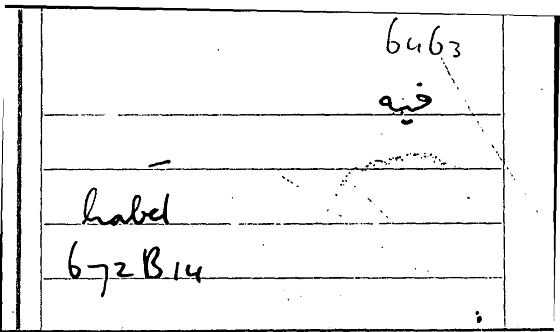 6463
فيه
–
label
672B14